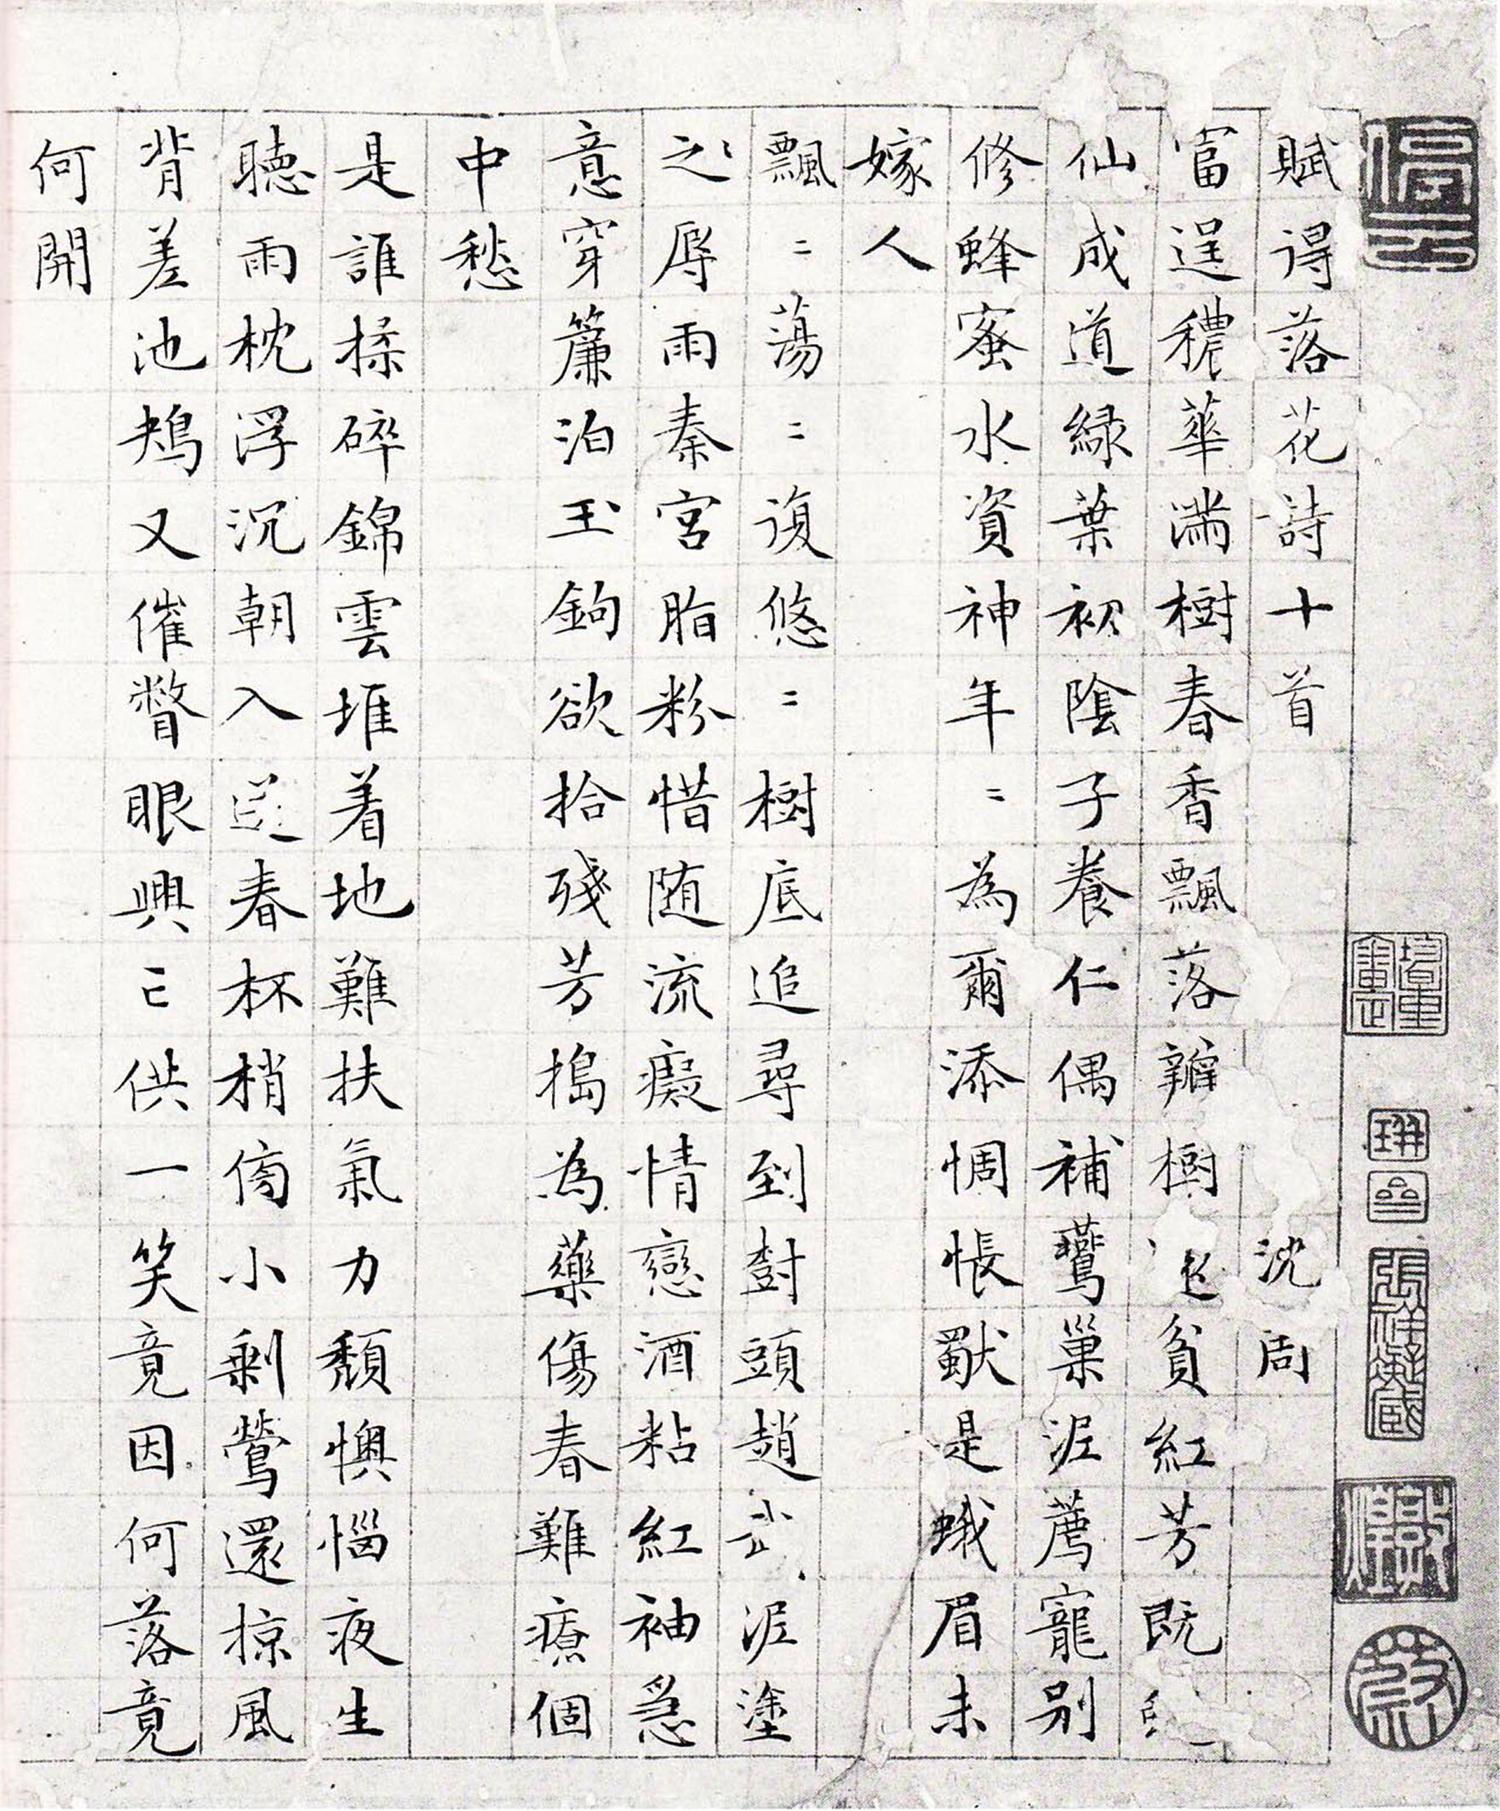 賦得落花詩十首 沈周
富逞穠華滿樹春香飄落瓣樹貧紅芳既
仙成道綠葉初陰子養仁偶補鷰巢泥薦寵別
修蜂蜜水資神年〻為爾添惆悵猒是蛾眉未
嫁人
飄〻蕩〻復悠〻樹底追尋到樹頭趙武泥塗
之辱雨秦宮脂粉惜随流癡情戀酒粘紅袖急
意穿簾泊玉鉤欲拾殘芳搗為藥傷春難療個
中愁
是誰揉碎錦雲堆着地難扶氣力頹懊惱夜生
聽雨枕浮沉朝入送春杯梢傍小剩鶯還掠風
背差池鴂又催瞥眼興亡供一笑竟因何落竟
何開